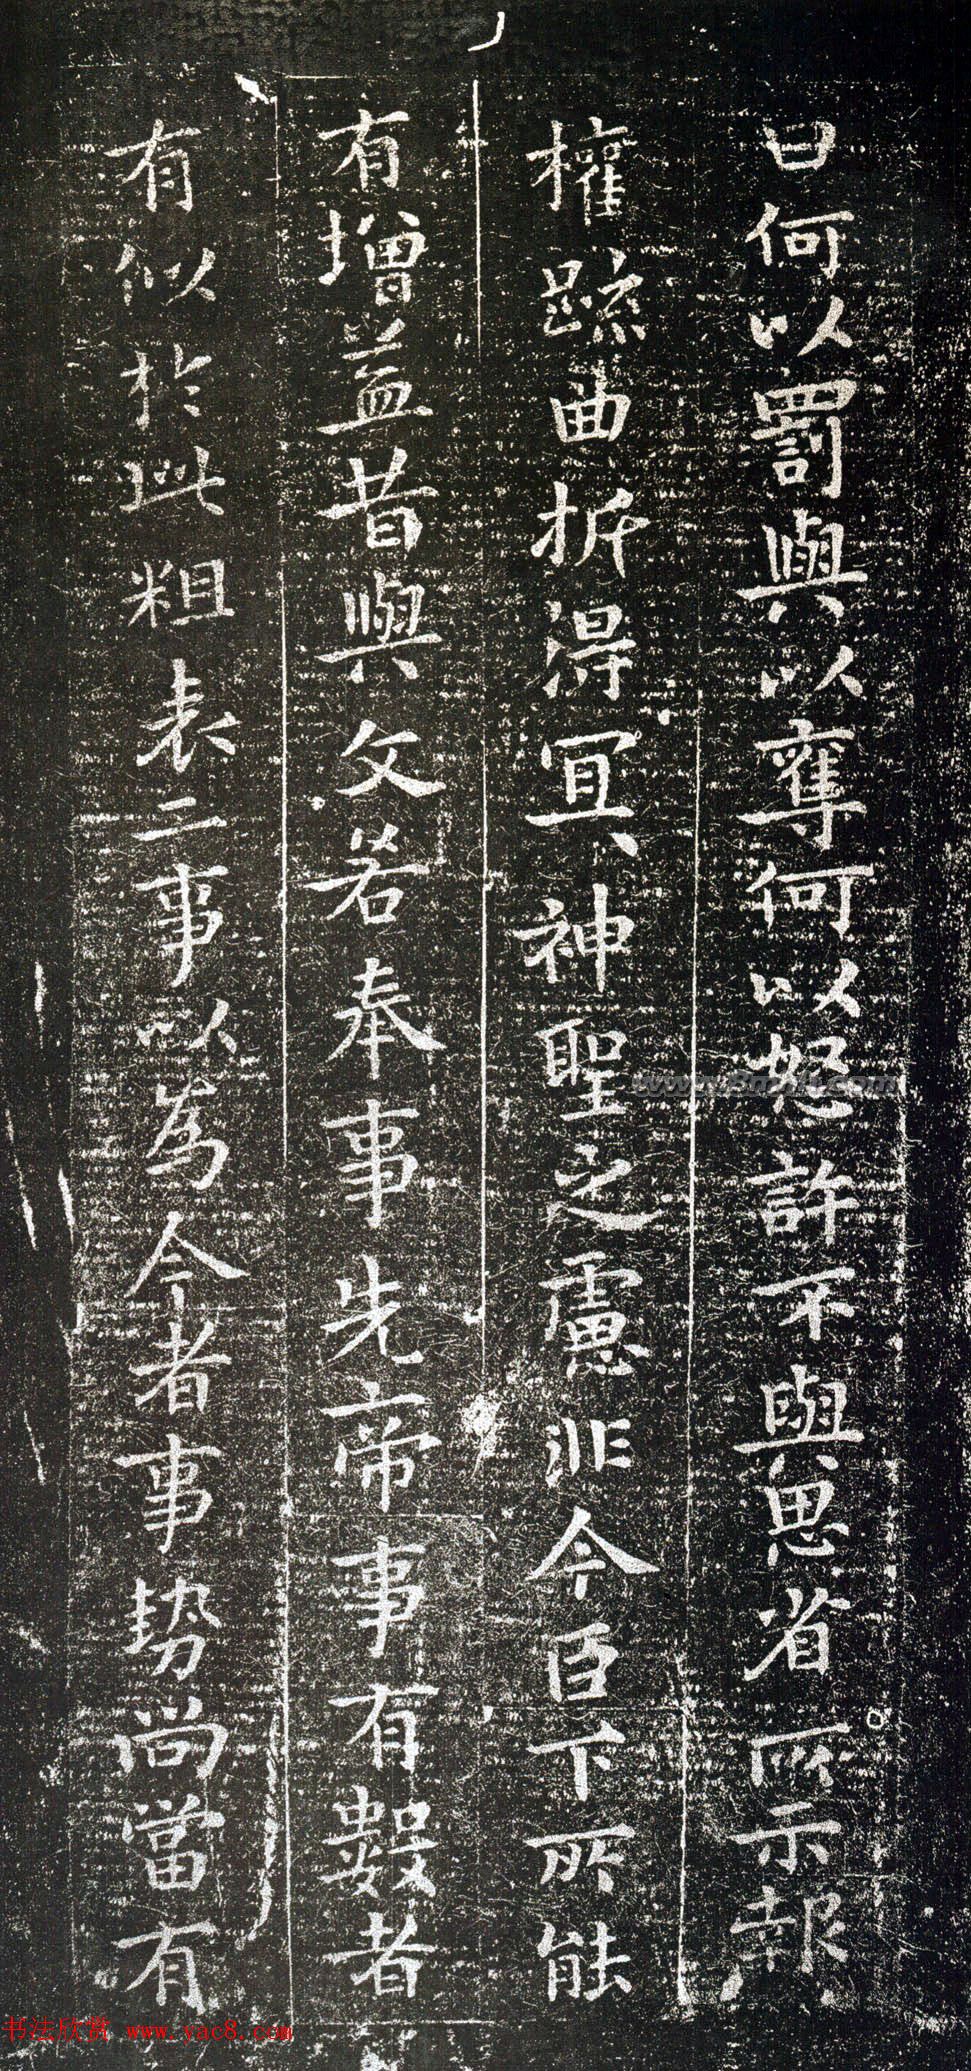 曰何以罰與以奪何以怒許不與思省所示報
權疏曲折得冝神聖之慮非今臣下所能
有增益昔與文若奉事先帝事有數者
有似於此粗表二事以為今者事勢尚當有
书法欣赏 www.yac8.com